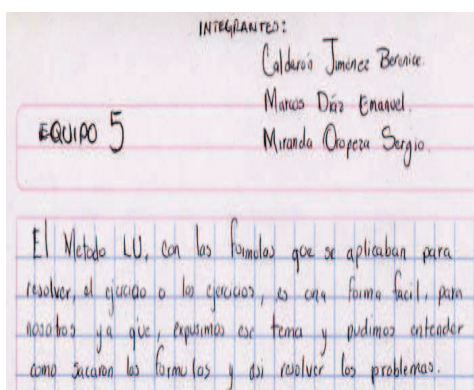 INTEGRANTES:
Calderón Jiménez Berenice.
Marcos Díaz Emanuel.
EQUIPO 5
Miranda Oropeza Sergio.
El Metodo LU, con las formulas que se aplicaban para
resolver, el ejercicio o los ejercicios, es una forma facil, para
nosotros ya que, expusimos ese tema y pudimos entender
como sacaron las formulas y asi resolver los problemas.